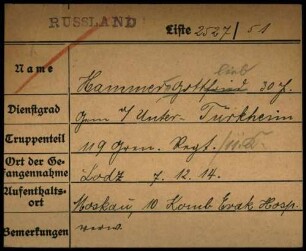 RUSSLAND Liste 2527/51
Name Hammer Gottlieb 30 J.
Dienstgrad Gem a/ Unter-Türkheim
Truppenteil 119 Gren. Regt.
Ort der Gefangennahme Lodz 7.12.14.
Aufenthaltsort Moskau, 10 Komb Evak Hosp
Bemerkungen verw.